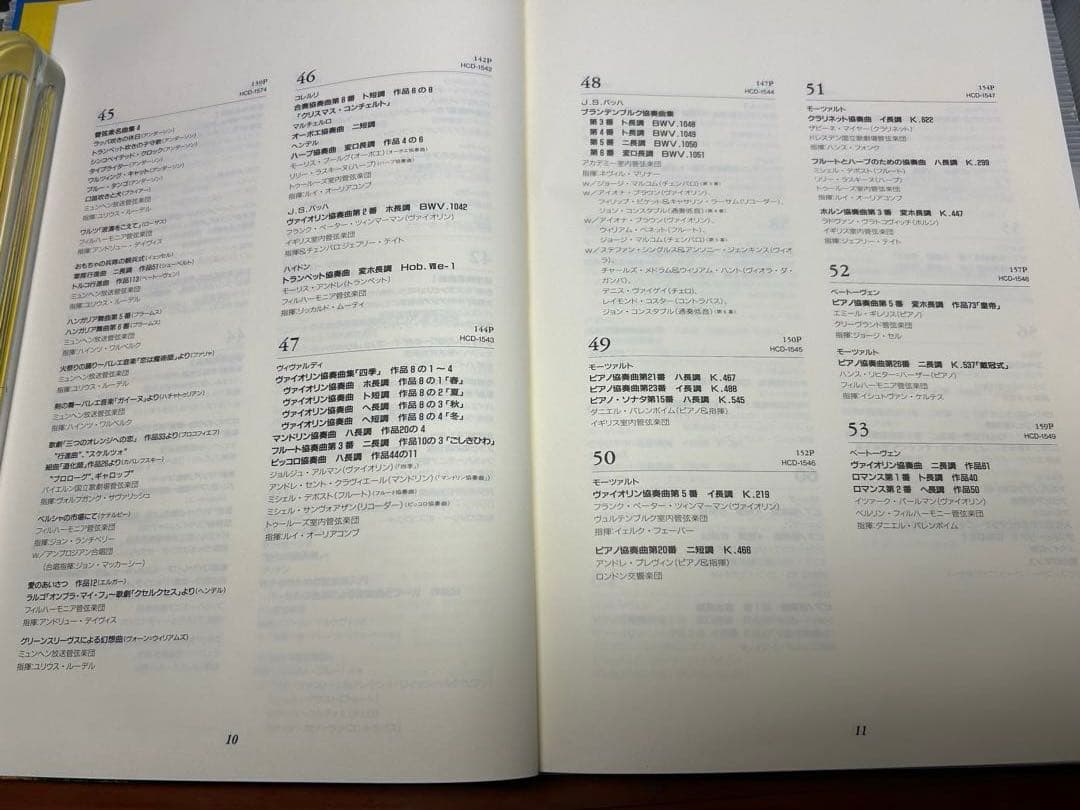 45
139P
HCD-1574
管弦楽名曲集 4
ラッパ吹きの休日(アンダーソン)
トランペット吹きの子守歌(アンダーソン)
シンコペイテッド・クロック(アンダーソン)
タイプライター(アンダーソン)
ワルツィング・キャット(アンダーソン)
ブルー・タンゴ(アンダーソン)
口笛吹きと犬(プライアー)
ミュンヘン放送管弦楽団
指揮:ユリウス・ルーデル
ワルツ「波濤をこえて」(ローサス)
フィルハーモニア管弦楽団
指揮:アンドリュー・デイヴィス
おもちゃの兵隊の観兵式(イェッセル)
軍隊行進曲 ニ長調 作品51(シューベルト)
トルコ行進曲 作品113(ベートーヴェン)
ミュンヘン放送管弦楽団
指揮:ユリウス・ルーデル
ハンガリア舞曲第5番(ブラームス)
ハンガリア舞曲第6番(ブラームス)
ミュンヘン放送管弦楽団
指揮:ハインツ・ワルベルク
火祭りの踊り〜バレエ音楽「恋は魔術師」より(ファリャ)
ミュンヘン放送管弦楽団
指揮:ユリウス・ルーデル
剣の舞〜バレエ音楽「ガイーヌ」より(ハチャトゥリアン)
ミュンヘン放送管弦楽団
指揮:ハインツ・ワルベルク
歌劇「三つのオレンジへの恋」 作品33より(プロコフィエフ)
"行進曲"、"スケルツォ"
組曲「道化師」作品26より(カバレフスキー)
"プロローグ"、ギャロップ"
バイエルン国立歌劇場管弦楽団
指揮:ヴォルフガング・サヴァリッシュ
ペルシャの市場にて(ケテルビー)
フィルハーモニア管弦楽団
指揮:ジョン・ランチベリー
w/アンブロジアン合唱団
(合唱指揮:ジョン・マッカーシー)
愛のあいさつ 作品12(エルガー)
ラルゴ「オンブラ・マイ・フ」〜歌劇「クセルクセス」より(ヘンデル)
フィルハーモニア管弦楽団
指揮:アンドリュー・デイヴィス
グリーンスリーヴスによる幻想曲(ヴォーン=ウィリアムズ)
ミュンヘン放送管弦楽団
指揮:ユリウス・ルーデル
46
142P
HCD-1542
コレルリ
合奏協奏曲第8番 ト短調 作品6の8
「クリスマス・コンチェルト」
マルチェルロ
オーボエ協奏曲 ニ短調
ヘンデル
ハープ協奏曲 変ロ長調 作品4の6
モーリス・ブールグ(オーボエ)(オーボエ協奏曲)
リリー・ラスキーヌ(ハープ)(ハープ協奏曲)
トゥールーズ室内管弦楽団
指揮:ルイ・オーリアコンブ
J.S.バッハ
ヴァイオリン協奏曲第2番 ホ長調 BWV.1042
フランク・ペーター・ツィンマーマン(ヴァイオリン)
イギリス室内管弦楽団
指揮&チェンバロ:ジェフリー・テイト
ハイドン
トランペット協奏曲 変ホ長調 Hob.Ⅶe-1
モーリス・アンドレ(トランペット)
フィルハーモニア管弦楽団
指揮:リッカルド・ムーティ
47
144P
HCD-1543
ヴィヴァルディ
ヴァイオリン協奏曲集「四季」 作品8の1〜4
ヴァイオリン協奏曲 ホ長調 作品8の1「春」
ヴァイオリン協奏曲 ト短調 作品8の2「夏」
ヴァイオリン協奏曲 ヘ長調 作品8の3「秋」
ヴァイオリン協奏曲 ヘ短調 作品8の4「冬」
マンドリン協奏曲 ハ長調 作品20の4
フルート協奏曲第3番 ニ長調 作品10の3「ごしきひわ」
ピッコロ協奏曲 ハ長調 作品44の11
ジョルジュ・アルマン(ヴァイオリン)(「四季」)
アンドレ・セント・クラヴィエール(マンドリン)(「マンドリン協奏曲」)
ミシェル・デボスト(フルート)(フルート協奏曲)
ミシェル・サンヴォアザン(リコーダー)(ピッコロ協奏曲)
トゥールーズ室内管弦楽団
指揮:ルイ・オーリアコンブ
10
48
147P
HCD-1544
J.S.バッハ
ブランデンブルク協奏曲集
第3番 ト長調 BWV.1048
第4番 ト長調 BWV.1049
第5番 ニ長調 BWV.1050
第6番 変ロ長調 BWV.1051
アカデミー室内管弦楽団
指揮:ネヴィル・マリナー
w/ジョージ・マルコム(チェンバロ)(第3番)
w/アイオナ・ブラウン(ヴァイオリン)
フィリップ・ピケット&キャサリン・ラーサム(リコーダー)、
ジョン・コンスタブル(通奏低音)(第4番)
w/アイオナ・ブラウン(ヴァイオリン)、
ウィリアム・ベネット(フルート)、
ジョージ・マルコム(チェンバロ)(第5番)
w/ステファン・シングルス&アンソニー・ジェンキンス(ヴィオ
ラ)、
チャールズ・メドラム&ウィリアム・ハント(ヴィオラ・ダ・
ガンバ)、
デニス・ヴァイゲイ(チェロ)、
レイモンド・コスター(コントラバス)、
ジョン・コンスタブル(通奏低音)(第6番)
49
150P
HCD-1545
モーツァルト
ピアノ協奏曲第21番 ハ長調 K.467
ピアノ協奏曲第23番 イ長調 K.488
ピアノ・ソナタ第15番 ハ長調 K.545
ダニエル・バレンボイム(ピアノ&指揮)
イギリス室内管弦楽団
50
152P
HCD-1546
モーツァルト
ヴァイオリン協奏曲第5番 イ長調 K.219
フランク・ペーター・ツィンマーマン(ヴァイオリン)
ヴュルテンブルク室内管弦楽団
指揮:イェルク・フェーバー
ピアノ協奏曲第20番 ニ短調 K.466
アンドレ・プレヴィン(ピアノ&指揮)
ロンドン交響楽団
51
154P
HCD-1547
モーツァルト
クラリネット協奏曲 イ長調 K.622
ザビーネ・マイヤー(クラリネット)
ドレスデン国立歌劇場管弦楽団
指揮:ハンス・フォンク
フルートとハープのための協奏曲 ハ長調 K.299
ミシェル・デボスト(フルート)
リリー・ラスキーヌ(ハープ)
トゥールーズ室内管弦楽団
指揮:ルイ・オーリアコンブ
ホルン協奏曲第3番 変ホ長調 K.447
ラドヴァン・ヴラトコヴィッチ(ホルン)
イギリス室内管弦楽団
指揮:ジェフリー・テイト
52
157P
HCD-1548
ベートーヴェン
ピアノ協奏曲第5番 変ホ長調 作品73「皇帝」
エミール・ギレリス(ピアノ)
クリーヴランド管弦楽団
指揮:ジョージ・セル
モーツァルト
ピアノ協奏曲第26番 ニ長調 K.537「戴冠式」
ハンス・リヒター・ハーザー(ピアノ)
フィルハーモニア管弦楽団
指揮:イシュトヴァン・ケルテス
53
159P
HCD-1549
ベートーヴェン
ヴァイオリン協奏曲 ニ長調 作品61
ロマンス第1番 ト長調 作品40
ロマンス第2番 ヘ長調 作品50
イツァーク・パールマン(ヴァイオリン)
ベルリン・フィルハーモニー管弦楽団
指揮:ダニエル・バレンボイム
11